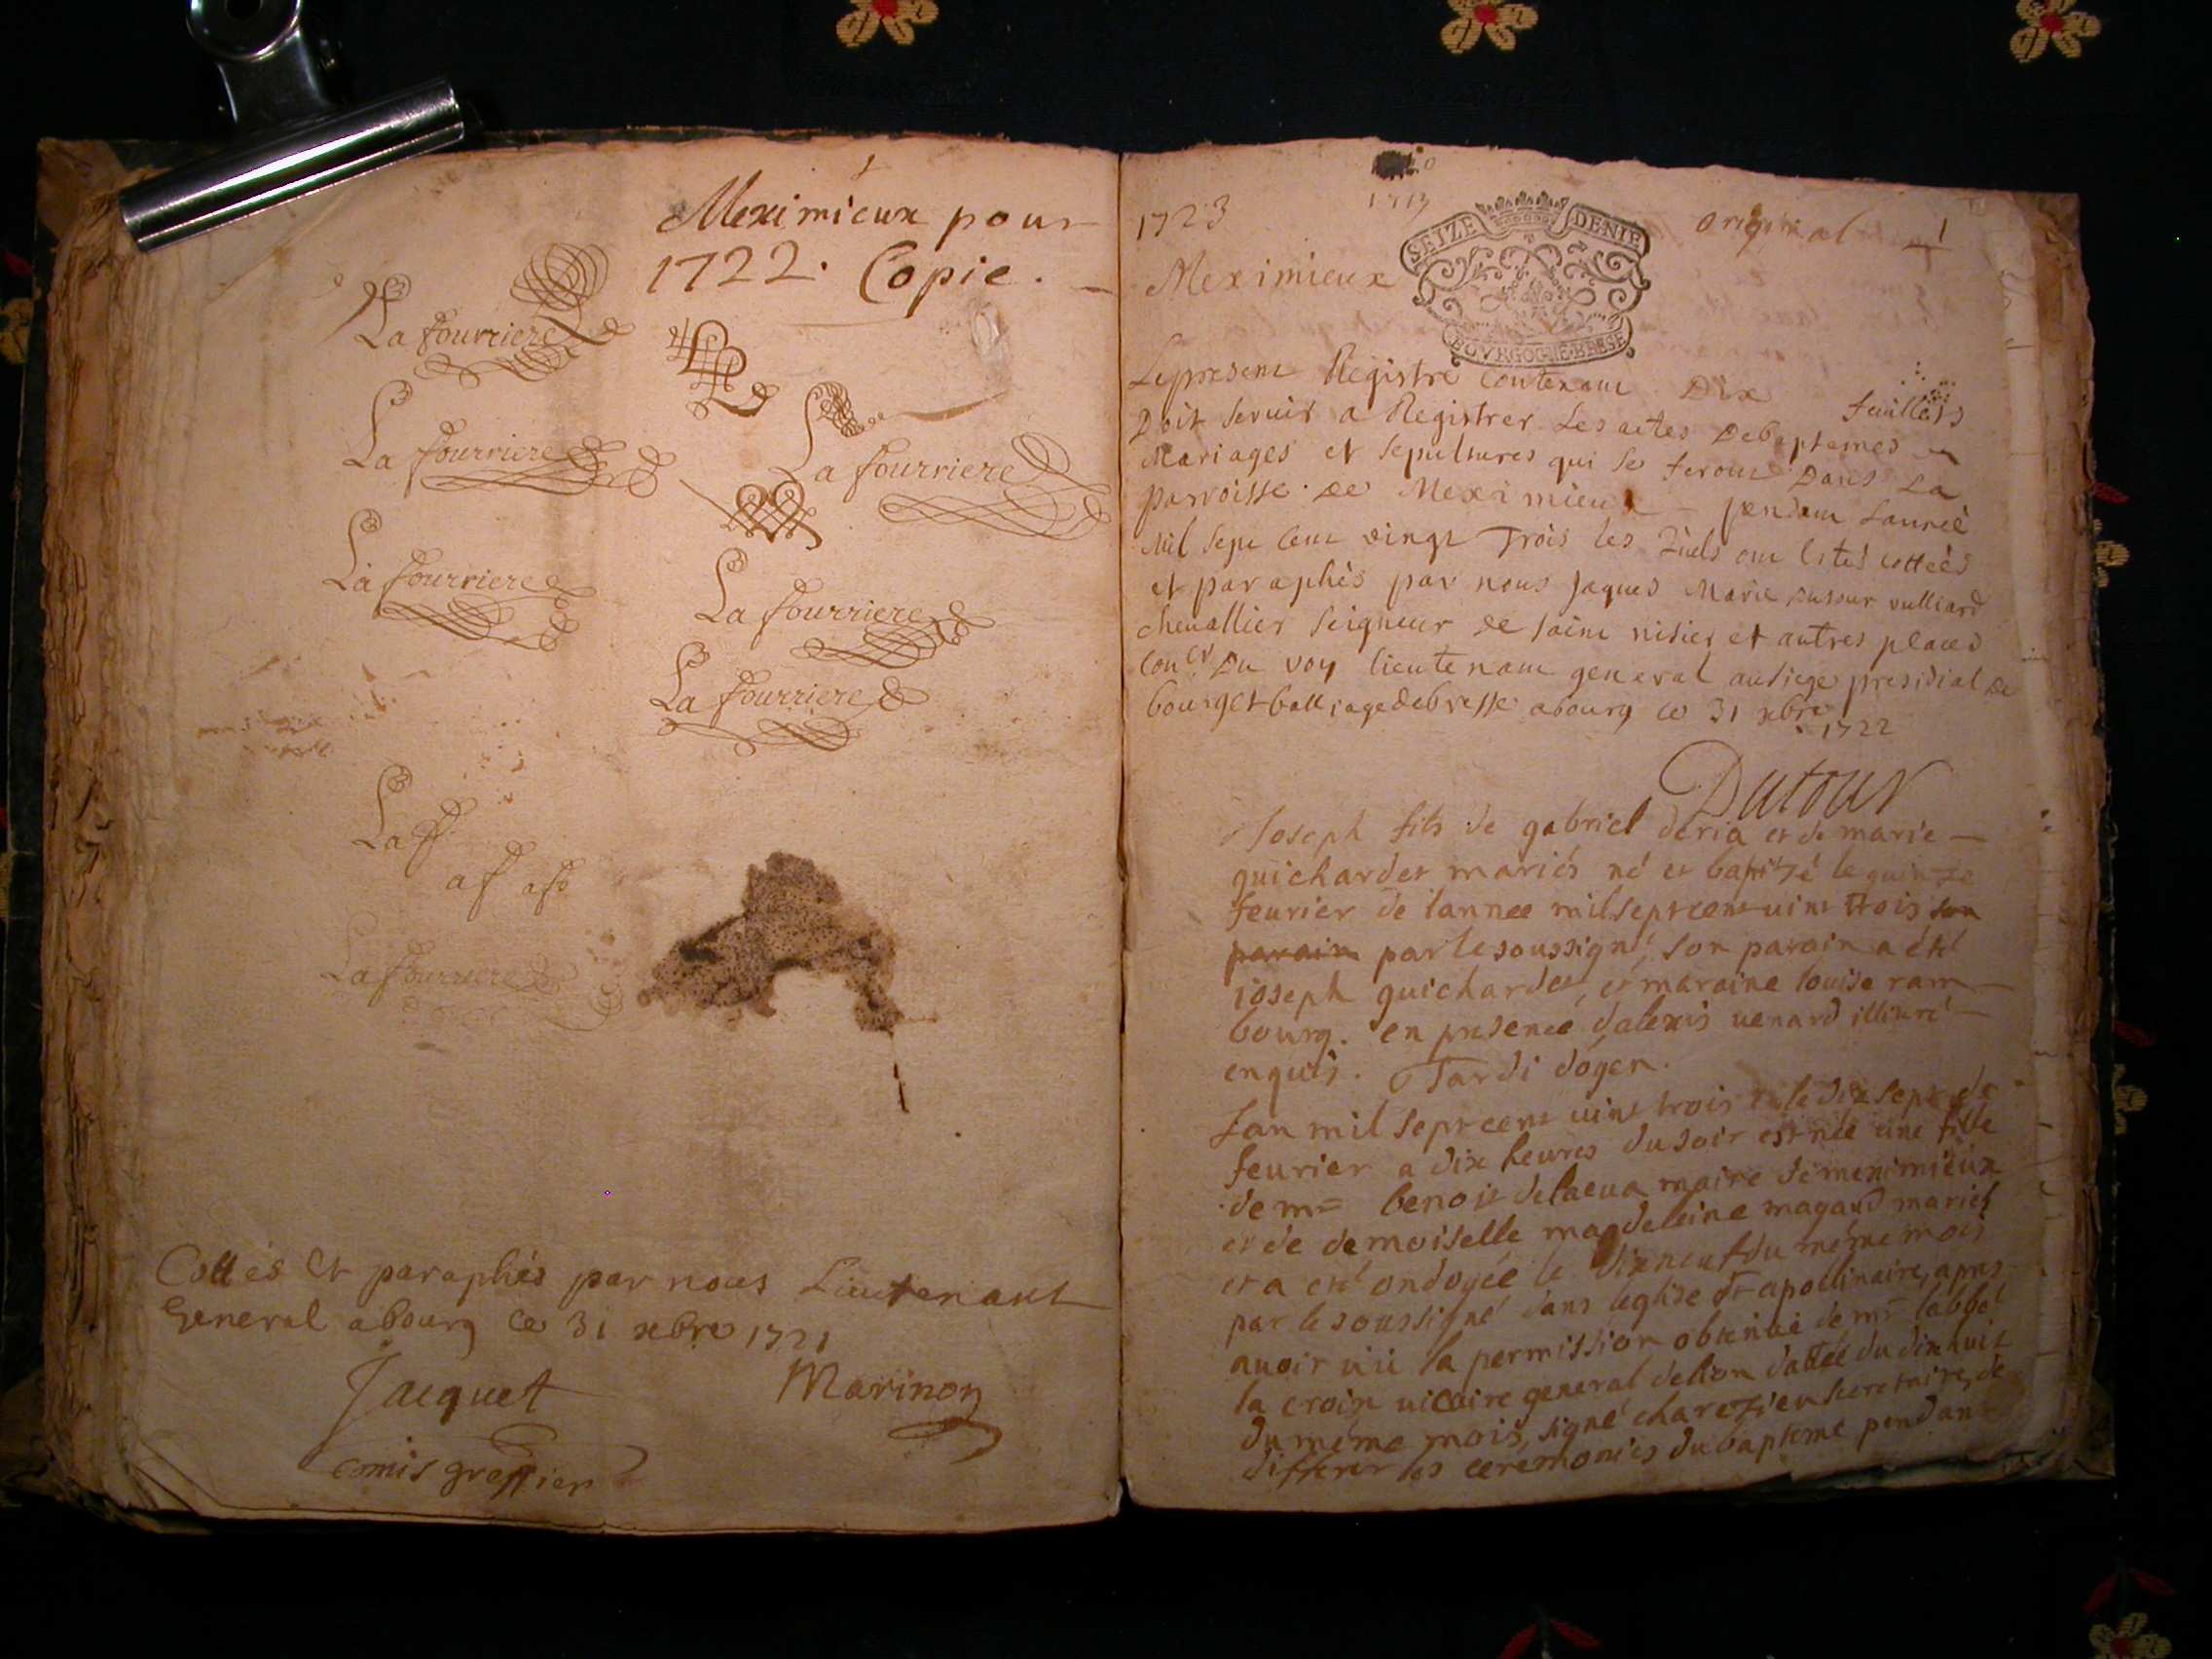 Meximieux pour
1722. Copie.
La fourriere
La fourriere
La fourriere
La fourriere
La fourriere
La fourriere
Laf
af afo
La fourriere
Cottés Et paraphés par nous Lieutenant
General abourg ce 31 xbre 1721
Jacquet
Marinon
comis greffier
1723
original 1
Meximieux
SEIZE DENIE
BOVRGOGNE BRESSE
Lepresent Registre Contenant Dix feuillets
Doit servir a Registrer Les actes Debaptemes
Mariages et sepultures qui se feront Dans La
parroisse De Meximieux pendant Lanneé
Mil sept Cent vingt Trois les quels ont estés cottées
et paraphés par nous Jaques Marie vulliard
chevallier seigneur de saint nisier et autres places
Con.er Du roy lieutenant general ausiege presidial de
bourg et balliage debresse abourg ce 31 xbre
1722
Dutour
Joseph fils de gabriel deria et de marie
guichardet mariés né et baptizé le quinze
feurier de lannee mil sept cent uint trois son
parain par le soussigné, son parain a été
ioseph guichardet, et maraine louise ram
bourg. en presence dalexis uenard illiteré
enquis. Tardi doyen.
Lan mil sept cent uint trois et le dix sept de
feurier a dix heures du soir est née une fille
de mr benoit delaeua maire de meximieux
et de demoiselle magdeleine magaud mariés
et a eté ondoyée le dixneuf du méme mois
par le soussigné dans leglise st apollinaire, apres
auoir uü la permission obtenüe de mr labbé
la croix uicaire general de lion datée du dixhuit
du méme mois, signé charezieu secretaire, de
differer les ceremonies du bapteme pendant